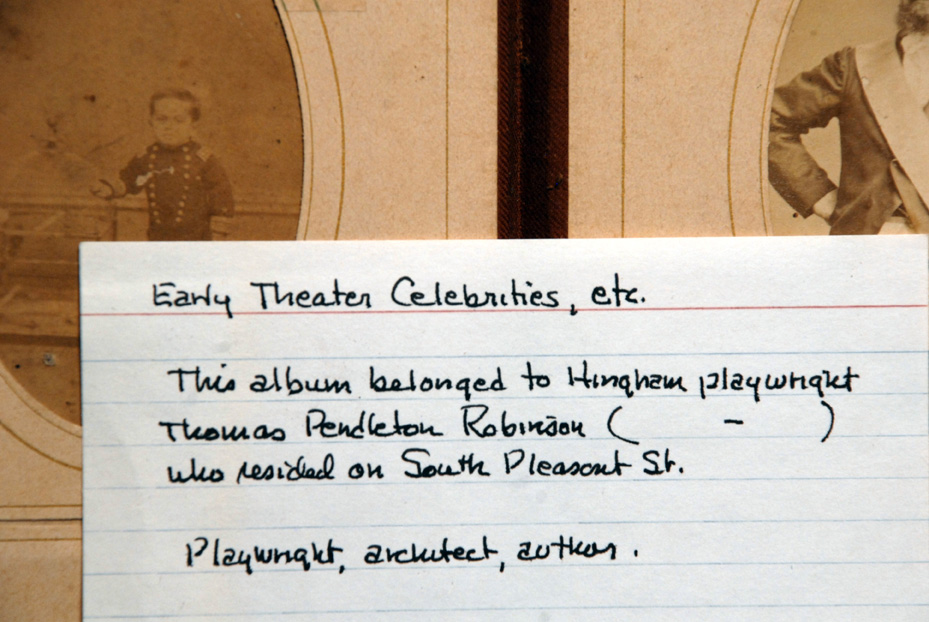 Early Theater Celebrities, etc.
This album belonged to Hingham playwright
Thomas Pendleton Robinson (     -     )
who resided on South Pleasant St.
Playwright, architect, author.